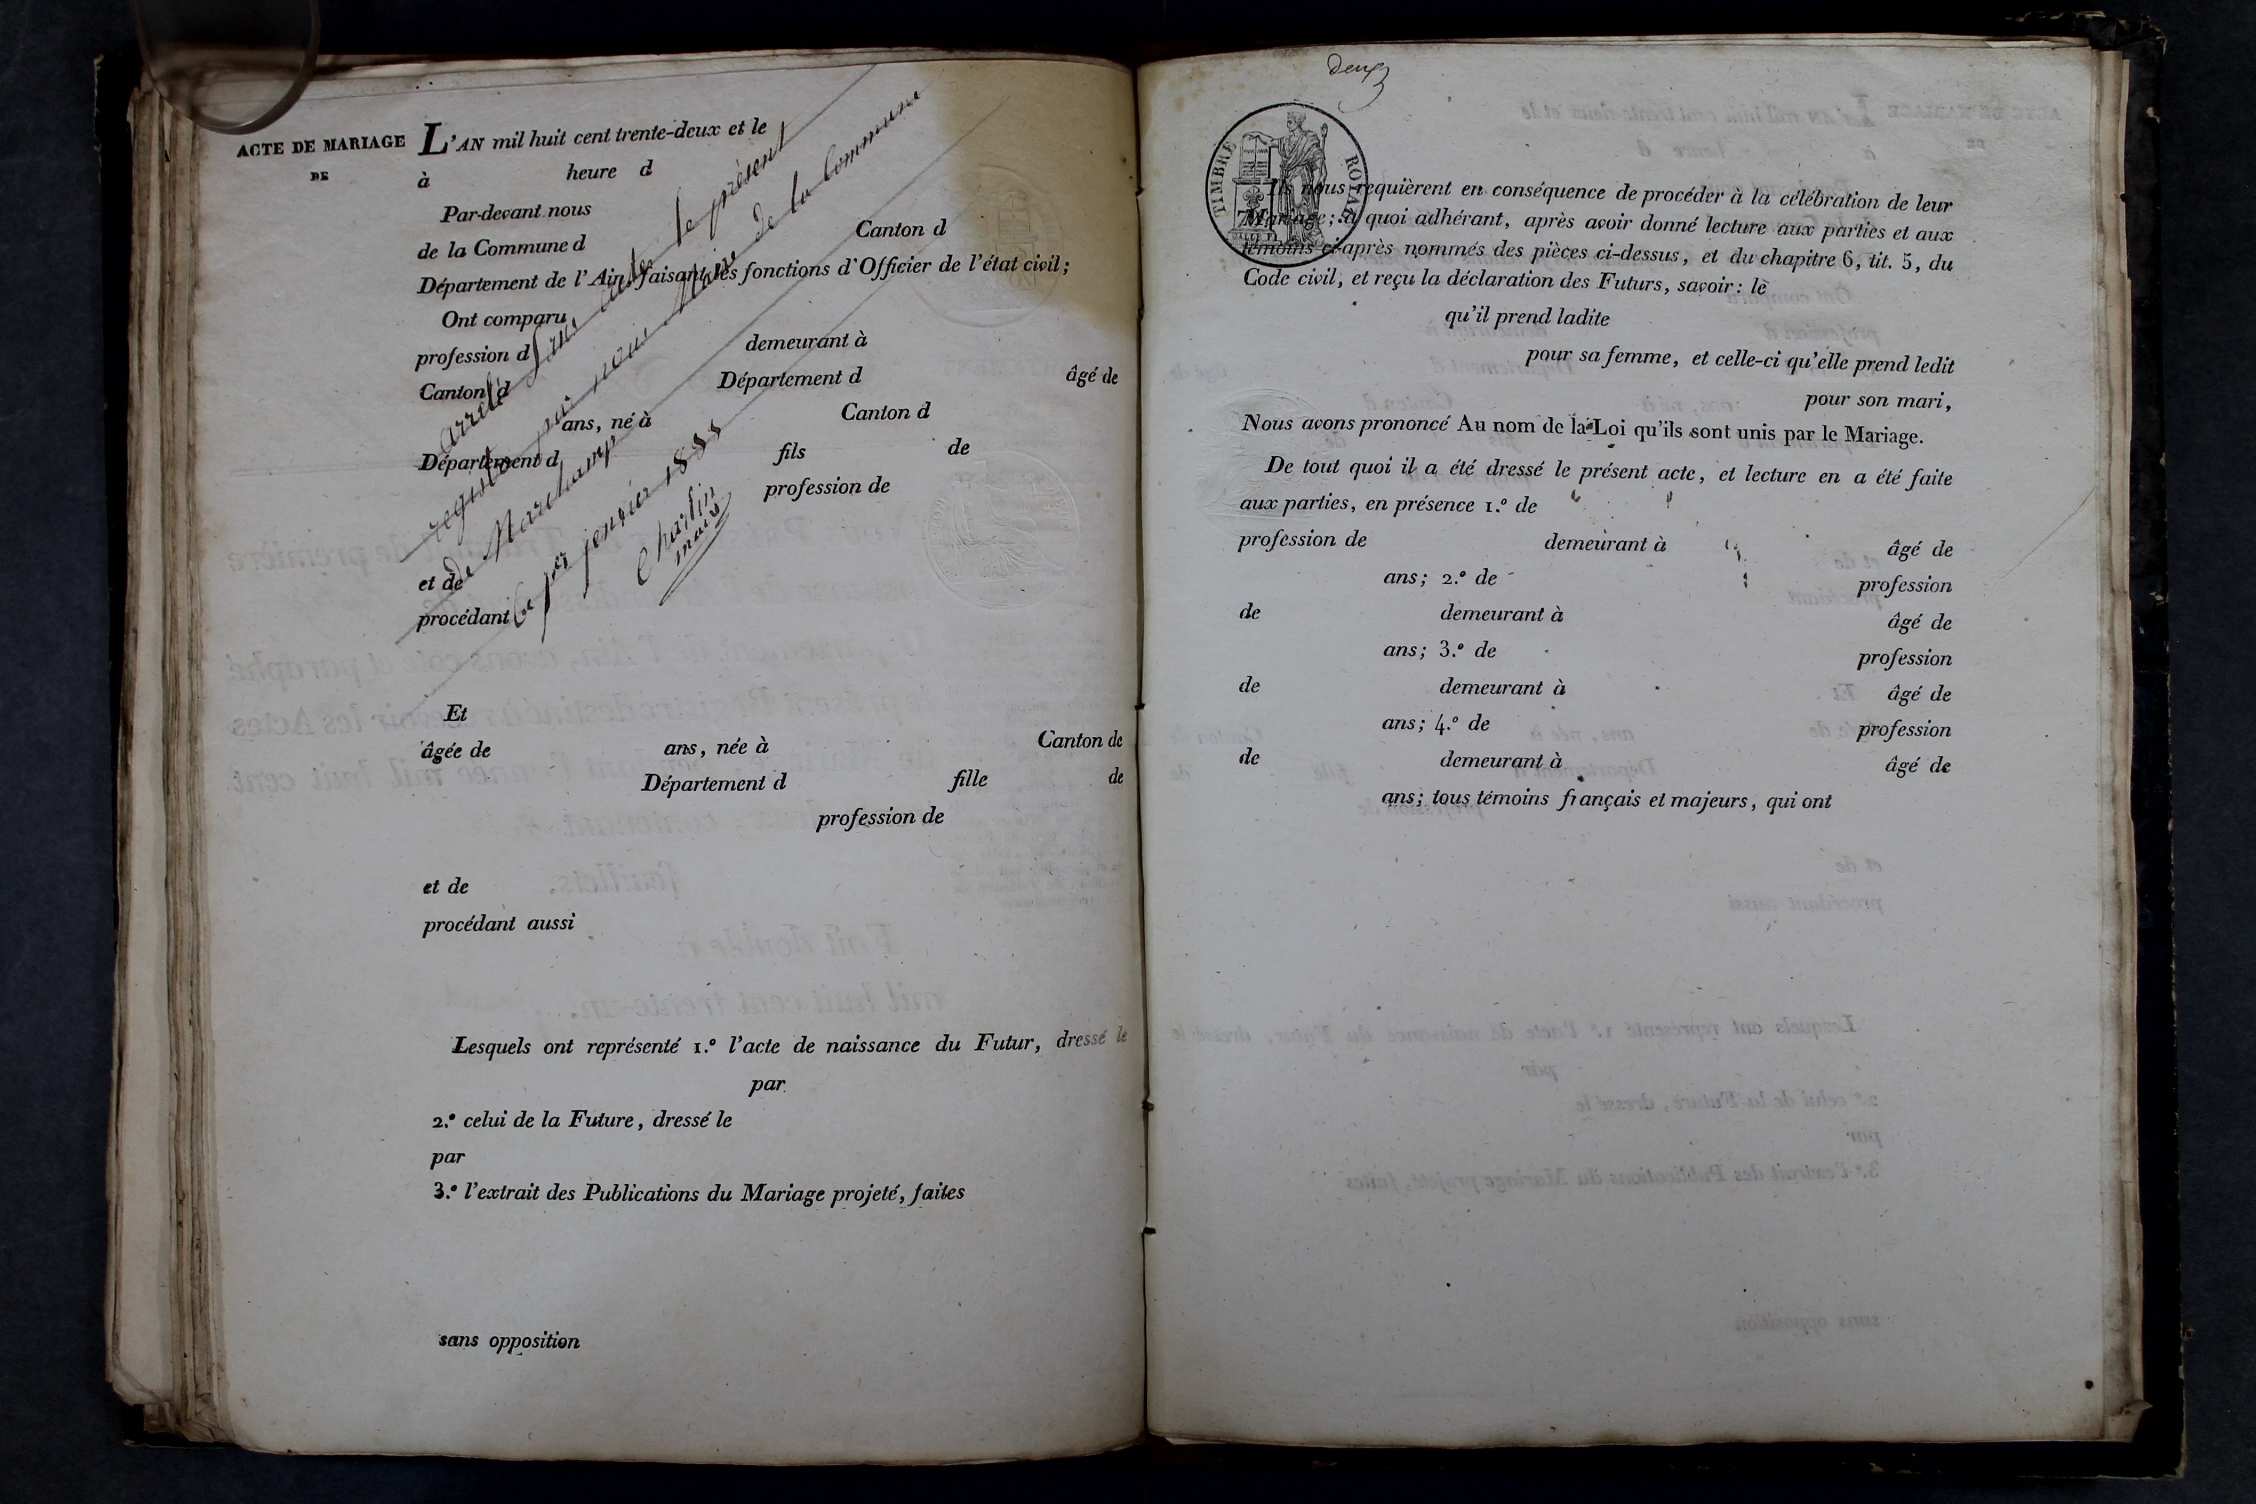 ACTE DE MARIAGE
DE
L'AN mil huit cent trente-deux et le
à heure d
Par-devant nous
de la Commune d Canton d
Département de l'Ain, faisant les fonctions d'Officier de l'état civil;
Ont comparu
profession d demeurant à
Canton d Département d âgé de
ans, né à Canton d
Département d fils de
profession de
et de
procédant
arrêté sans actes le présent
registre par nous Maire de la Commune
de Marchamp
Ce 1er janvier 1833
Charlin
maire
Et
âgée de ans, née à Canton de
Département d fille de
profession de
et de
procédant aussi
Lesquels ont représenté 1.º l'acte de naissance du Futur, dressé le
par
2.º celui de la Future, dressé le
par
3.º l'extrait des Publications du Mariage projeté, faites
sans opposition
deux
TIMBRE ROYAL
Ils nous requièrent en conséquence de procéder à la célébration de leur
Mariage; à quoi adhérant, après avoir donné lecture aux parties et aux
témoins ci-après nommés des pièces ci-dessus, et du chapitre 6, tit. 5, du
Code civil, et reçu la déclaration des Futurs, savoir: le
qu'il prend ladite
pour sa femme, et celle-ci qu'elle prend ledit
pour son mari,
Nous avons prononcé Au nom de la Loi qu'ils sont unis par le Mariage.
De tout quoi il a été dressé le présent acte, et lecture en a été faite
aux parties, en présence 1.º de
profession de demeurant à âgé de
ans; 2.º de profession
de demeurant à âgé de
ans; 3.º de profession
de demeurant à âgé de
ans; 4.º de profession
de demeurant à âgé de
ans; tous témoins français et majeurs, qui ont